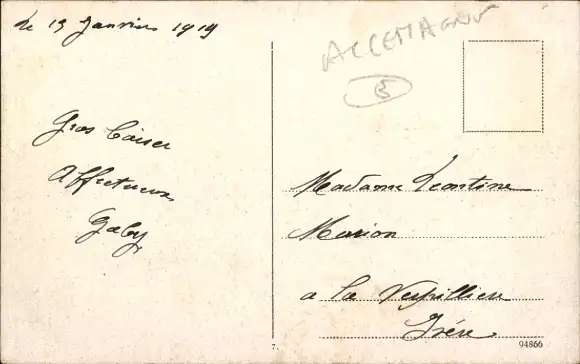 Le 13 Janvier 1919
ALLEMAGNE
5
Gros Baiser
Affectueux
Gaby
Madame Leontine
Marion
a La Verpilliere
Isère
7.
94866